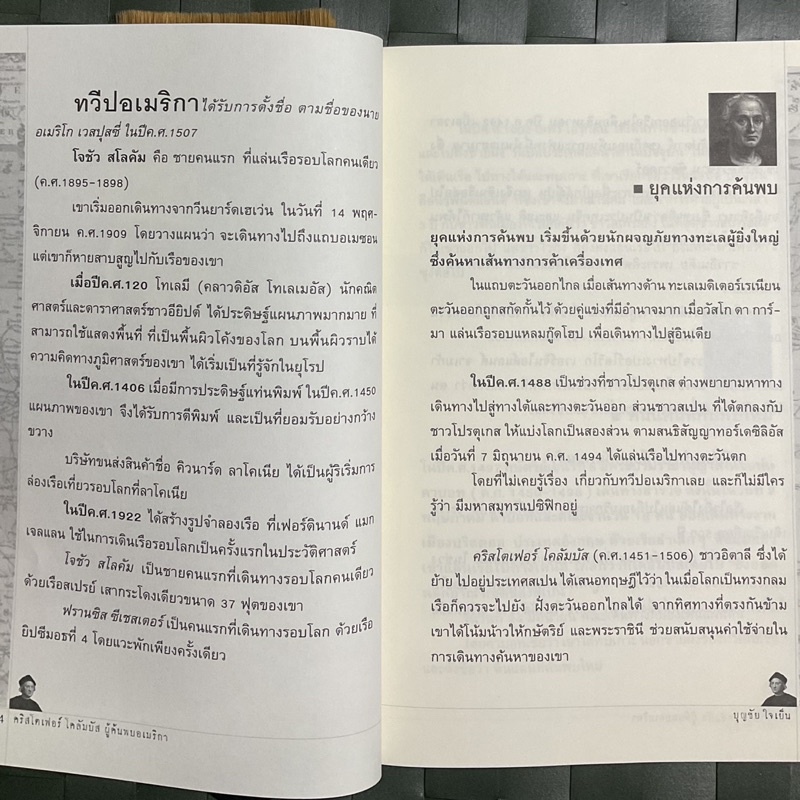 ทวีปอเมริกาได้รับการตั้งชื่อ ตามชื่อของนาย
อเมริโก เวสปุสซี่ ในปีค.ศ.1507
โจชัว สโลคัม คือ ชายคนแรก ที่แล่นเรือรอบโลกคนเดียว
(ค.ศ.1895-1898)
เขาเริ่มออกเดินทางจากวีนยาร์ดเฮเว่น ในวันที่ 14 พฤศ-
จิกายน ค.ศ.1909 โดยวางแผนว่า จะเดินทางไปถึงแถบอเมซอน
แต่เขาก็หายสาบสูญไปกับเรือของเขา
เมื่อปีค.ศ.120 โทเลมี (คลาวดิอัส โทเลเมอัส) นักคณิต
ศาสตร์และดาราศาสตร์ชาวอียิปต์ ได้ประดิษฐ์แผนภาพมากมาย ที่
สามารถใช้แสดงพื้นที่ ที่เป็นพื้นผิวโค้งของโลก บนพื้นผิวราบได้
ความคิดทางภูมิศาสตร์ของเขา ได้เริ่มเป็นที่รู้จักในยุโรป
ในปีค.ศ.1406 เมื่อมีการประดิษฐ์แท่นพิมพ์ ในปีค.ศ.1450
แผนภาพของเขา จึงได้รับการตีพิมพ์ และเป็นที่ยอมรับอย่างกว้าง
ขวาง
บริษัทขนส่งสินค้าชื่อ คิวนาร์ด ลาโคเนีย ได้เป็นผู้ริเริ่มการ
ล่องเรือเที่ยวรอบโลกที่ลาโคเนีย
ในปีค.ศ.1922 ได้สร้างรูปจำลองเรือ ที่เฟอร์ดินานด์ แมก
เจลแลน ใช้ในการเดินเรือรอบโลกเป็นครั้งแรกในประวัติศาสตร์
โจชัว สโลคัม เป็นชายคนแรกที่เดินทางรอบโลกคนเดียว
ด้วยเรือสเปรย์ เสากระโดงเดียวขนาด 37 ฟุตของเขา
ฟรานซิส ชีเชสเตอร์ เป็นคนแรกที่เดินทางรอบโลก ด้วยเรือ
ยิปซีมอธที่ 4 โดยแวะพักเพียงครั้งเดียว
4 คริสโตเฟอร์ โคลัมบัส ผู้ค้นพบอเมริกา
■ ยุคแห่งการค้นพบ
ยุคแห่งการค้นพบ เริ่มขึ้นด้วยนักผจญภัยทางทะเลผู้ยิ่งใหญ่
ซึ่งค้นหาเส้นทางการค้าเครื่องเทศ
ในแถบตะวันออกไกล เมื่อเส้นทางด้าน ทะเลเมดิเตอร์เรเนียน
ตะวันออกถูกสกัดกั้นไว้ ด้วยคู่แข่งที่มีอำนาจมาก เมื่อวัสโก ดา การ์-
มา แล่นเรือรอบแหลมกู๊ดโฮป เพื่อเดินทางไปสู่อินเดีย
ในปีค.ศ.1488 เป็นช่วงที่ชาวโปรตุเกส ต่างพยายามหาทาง
เดินทางไปสู่ทางใต้และทางตะวันออก ส่วนชาวสเปน ที่ได้ตกลงกับ
ชาวโปรตุเกส ให้แบ่งโลกเป็นสองส่วน ตามสนธิสัญญาทอร์เดซิลิอัส
เมื่อวันที่ 7 มิถุนายน ค.ศ. 1494 ได้แล่นเรือไปทางตะวันตก
โดยที่ไม่เคยรู้เรื่อง เกี่ยวกับทวีปอเมริกาเลย และก็ไม่มีใคร
รู้ว่า มีมหาสมุทรแปซิฟิกอยู่
คริสโตเฟอร์ โคลัมบัส (ค.ศ.1451-1506) ชาวอิตาลี ซึ่งได้
ย้าย ไปอยู่ประเทศสเปน ได้เสนอทฤษฎีไว้ว่า ในเมื่อโลกเป็นทรงกลม
เรือก็ควรจะไปยัง ฝั่งตะวันออกไกลได้ จากทิศทางที่ตรงกันข้าม
เขาได้โน้มน้าวให้กษัตริย์ และพระราชินี ช่วยสนับสนุนค่าใช้จ่ายใน
การเดินทางค้นหาของเขา
บุญชัย ใจเย็น